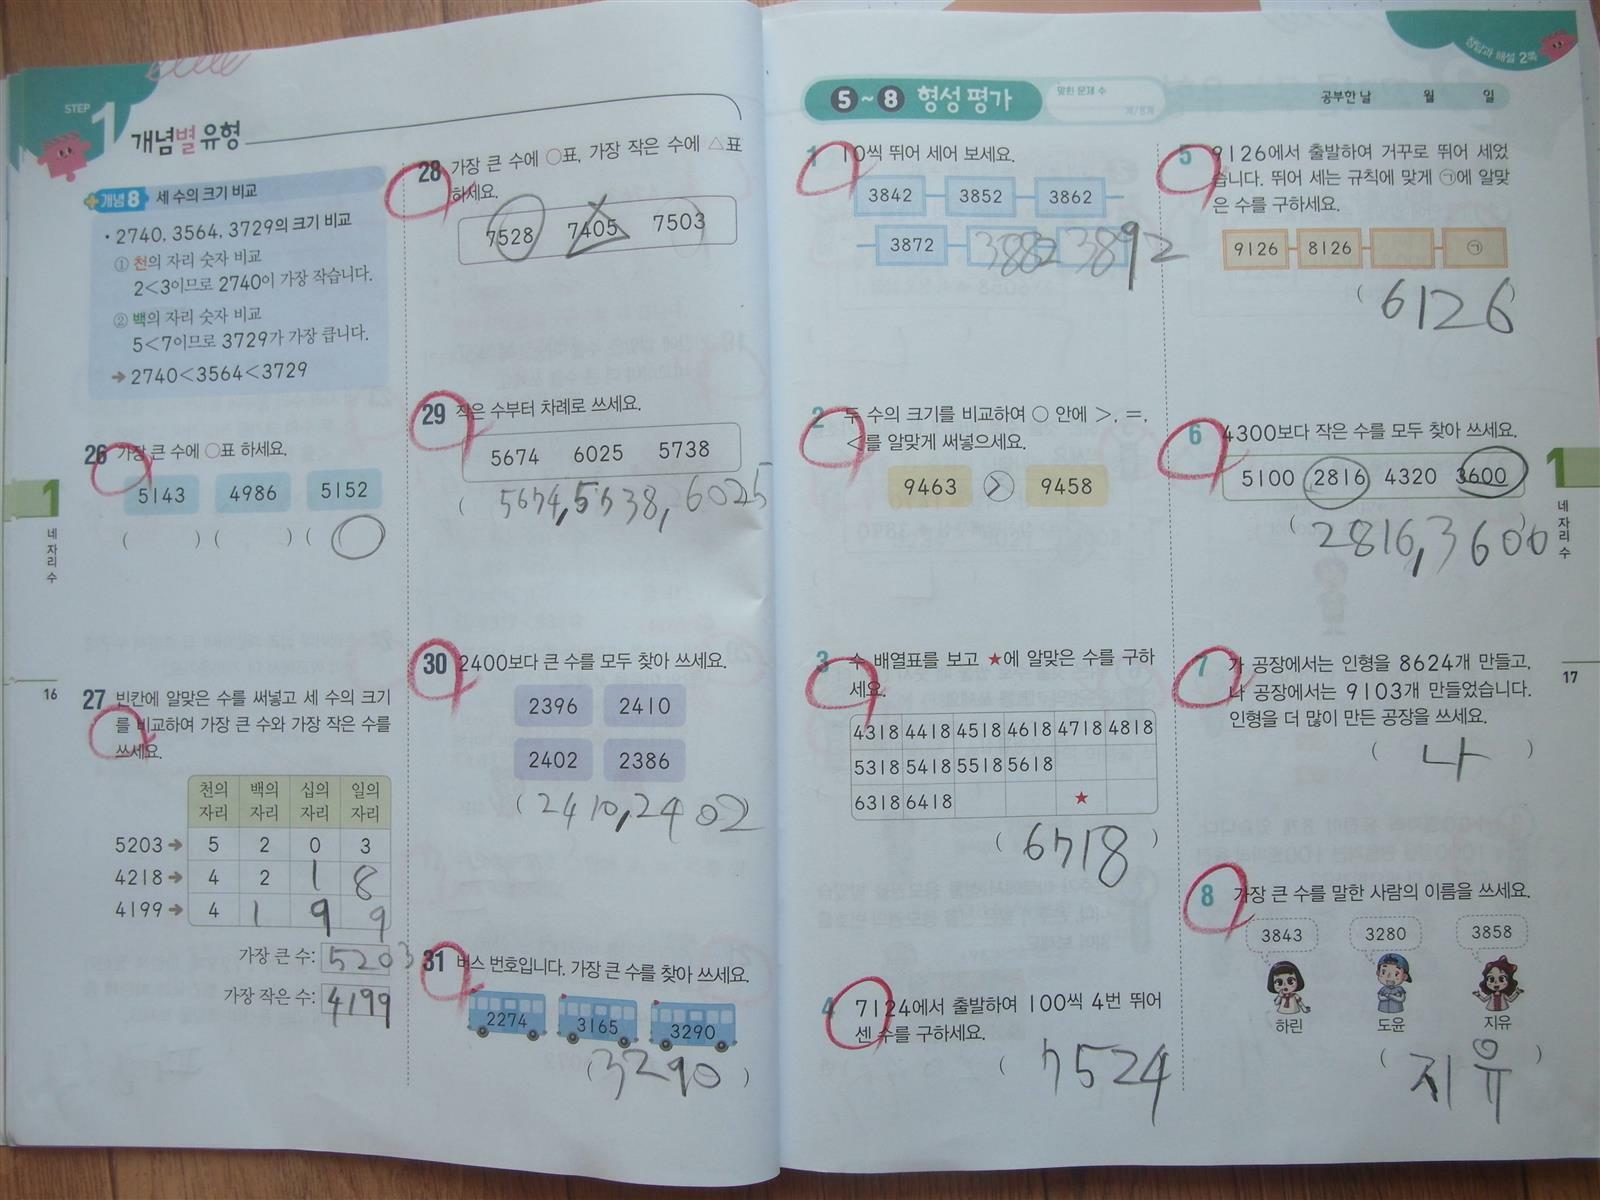 STEP 1 개념별 유형
개념 8 세 수의 크기 비교
• 2740, 3564, 3729의 크기 비교
① 천의 자리 숫자 비교
2<3이므로 2740이 가장 작습니다.
② 백의 자리 숫자 비교
5<7이므로 3729가 가장 큽니다.
→ 2740<3564<3729
26 가장 큰 수에 ○표 하세요.
5143 4986 5152
( ) ( ) ( ○
1
네 자리 수
16
27 빈칸에 알맞은 수를 써넣고 세 수의 크기
를 비교하여 가장 큰 수와 가장 작은 수를
쓰세요.
천의 백의 십의 일의
자리 자리 자리 자리
5203 → 5 2 0 3
4218 → 4 2 1 8
4199 → 4 1 9 9
가장 큰 수: 5203
가장 작은 수: 4199
28 가장 큰 수에 ○표, 가장 작은 수에 △표
하세요.
7528 7405 7503
29 작은 수부터 차례로 쓰세요.
5674 6025 5738
( 5674, 5738, 6025
30 2400보다 큰 수를 모두 찾아 쓰세요.
2396 2410
2402 2386
( 2410, 2402
31 버스 번호입니다. 가장 큰 수를 찾아 쓰세요.
2274 3165 3290
( 3290 )
정답과 해설 2쪽
5 ~ 8 형성 평가
맞힌 문제 수
개/8개
공부한 날 월 일
1 10씩 뛰어 세어 보세요.
3842 3852 3862
3872 3882 3892
2 두 수의 크기를 비교하여 ○ 안에 >, =,
<를 알맞게 써넣으세요.
9463 > 9458
3 수 배열표를 보고 ★에 알맞은 수를 구하
세요.
4318 4418 4518 4618 4718 4818
5318 5418 5518 5618
6318 6418 ★
( 6718 )
4 7124에서 출발하여 100씩 4번 뛰어
센 수를 구하세요.
( 7524
5 9126에서 출발하여 거꾸로 뛰어 세었
습니다. 뛰어 세는 규칙에 맞게 ㉠에 알맞
은 수를 구하세요.
9126 8126 ㉠
( 6126 )
6 4300보다 작은 수를 모두 찾아 쓰세요.
5100 2816 4320 3600
( 2816, 3600
7 가 공장에서는 인형을 8624개 만들고,
나 공장에서는 9103개 만들었습니다.
인형을 더 많이 만든 공장을 쓰세요.
( 나 )
8 가장 큰 수를 말한 사람의 이름을 쓰세요.
3843 3280 3858
하린 도윤 지유
( 지유 )
1
네 자리 수
17